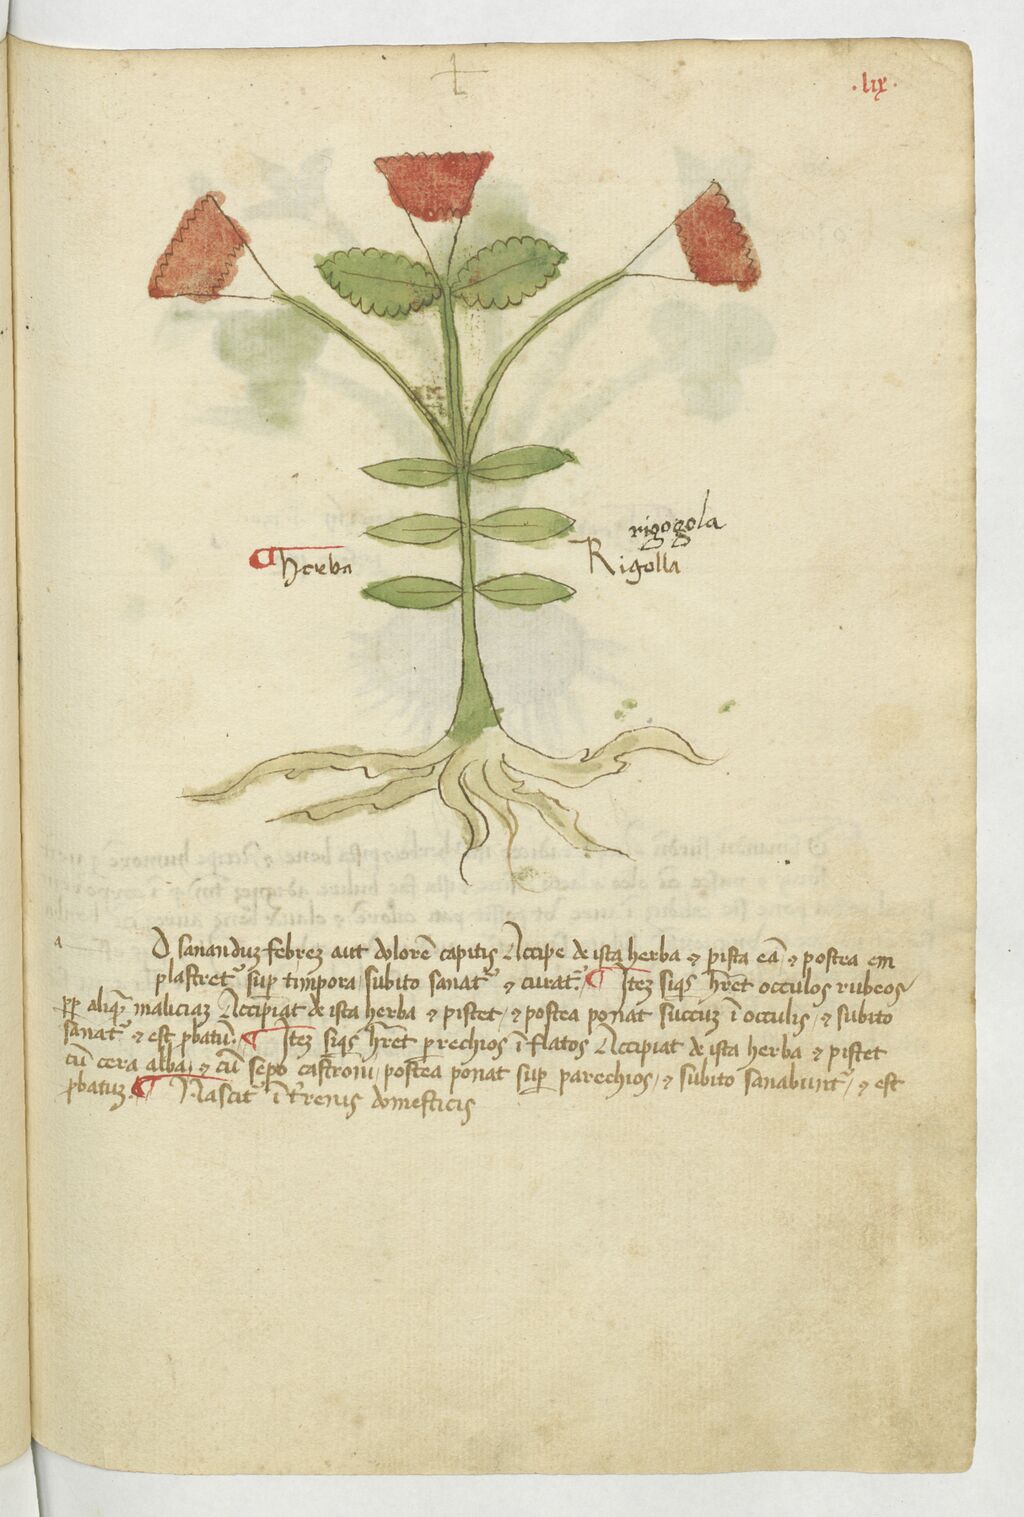 ·lix·
rigogola
Herba Rigolla
a
D sananduz febrez aut dolorē capitis Accipe de ista herba ⁊ pista eā ⁊ postea em
plastret᷑ sup timpora / subito sanat᷑ ⁊ curat᷑. ¶ Itez siqs hr̄et occulos rubeos
pp aliqȝ maliciaz Accipiat de ista herba ⁊ pistet / ⁊ postea ponat succuz ī occulis / ⁊ subito
sanat᷑ ⁊ est pbatū. ¶ Itez siqs hr̄et parechios īflatos Accipiat de ista herba ⁊ pistet
cū cera alba / ⁊ cū sepo castroni / postea ponat sup parechios / ⁊ subito sanabunt᷑ / ⁊ est
pbatuz. ¶ Nascit᷑ ī t̄renis domesticis